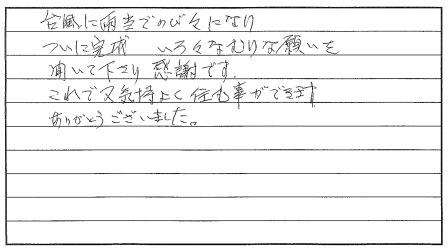 台風に雨当でのび々になり
ついに完成 いろ々なむりな願いを
聞いて下さり 感謝です.
これで又気持よく住む事ができます
ありがとうございました。